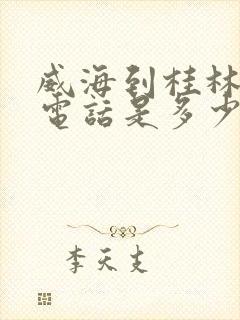 威海到桂林
電話是多少
李天支